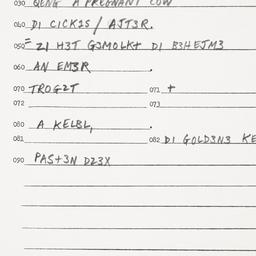 030 QENG A PREGNANT COW
040 DI CICK2S / AJT3R.
050 = ZI H3T G3MOLK+ DI B3HEJM3
060 AN EM3R .
070 TROG2T 071 +
072 073
080 A KELBL, .
081 082 DI GOLD3N3 KE
090 PAS+3N D23X